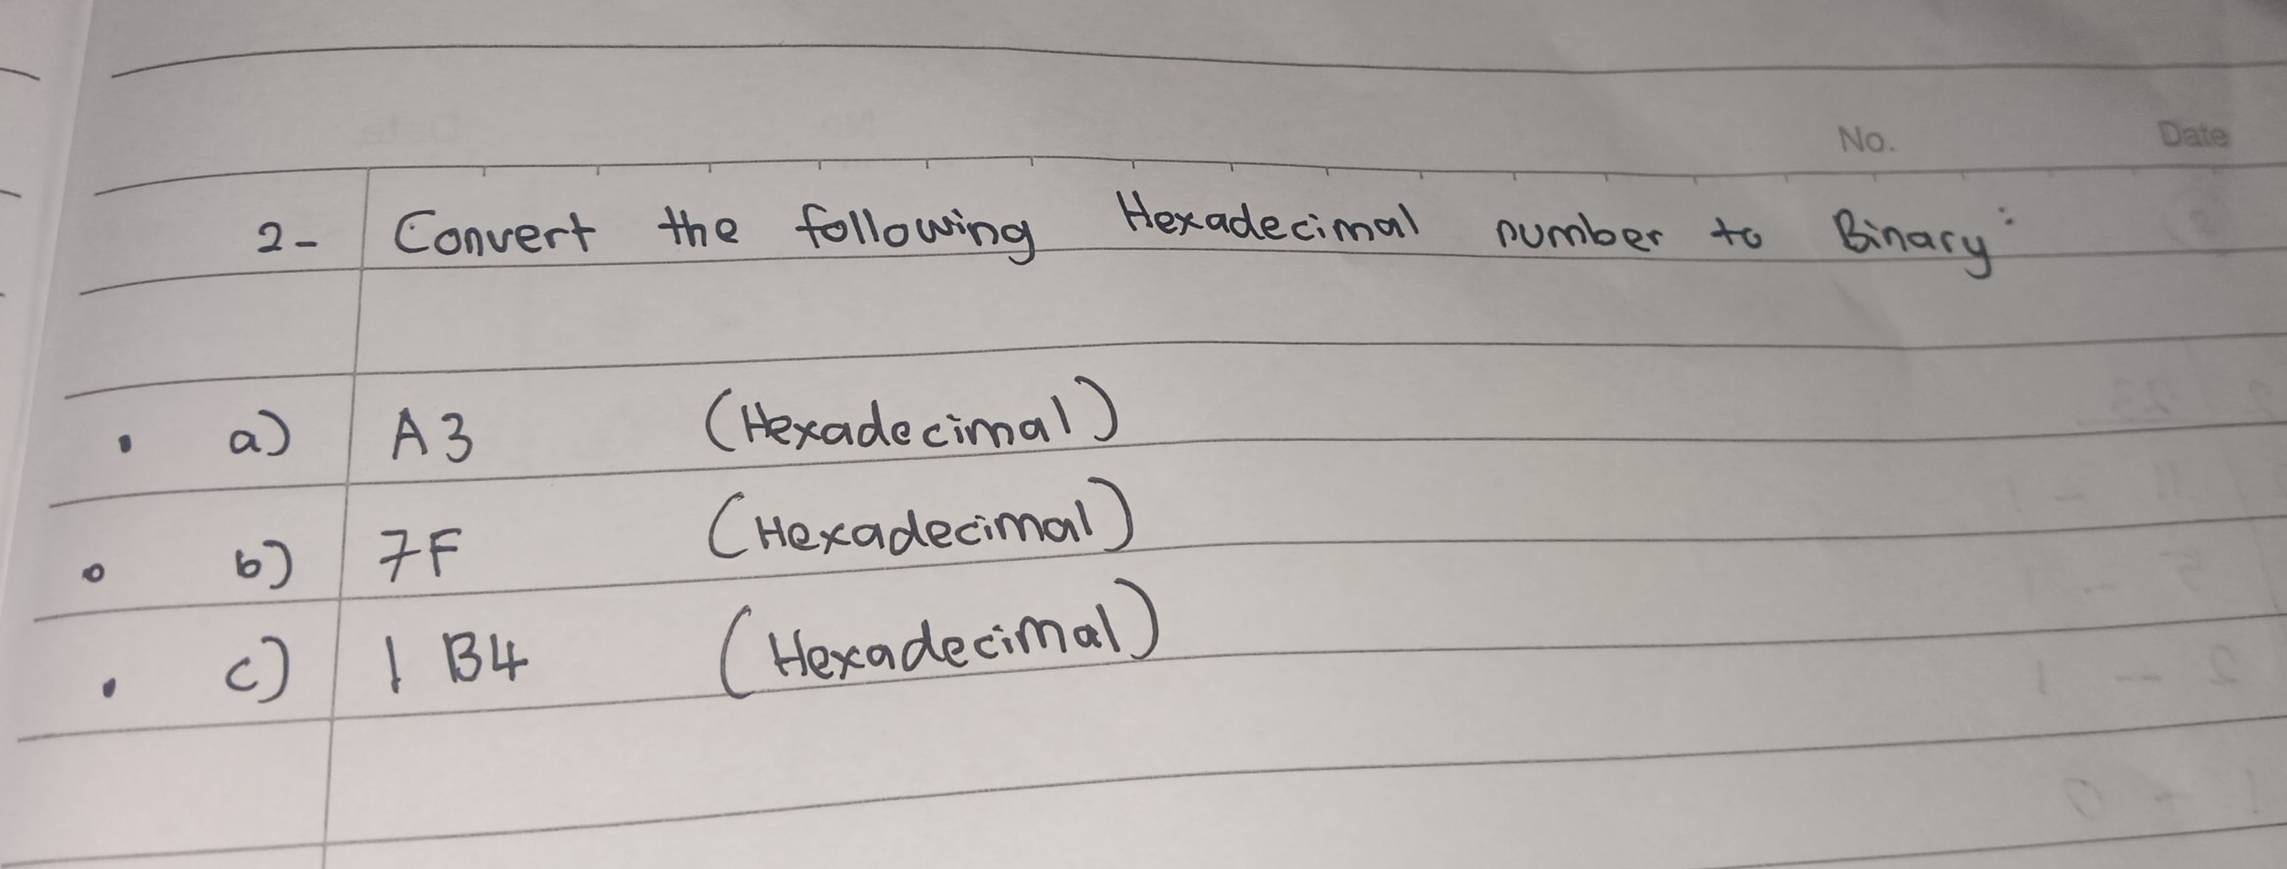 No. Date
2- Convert the following Hexadecimal number to Binary:
• a) A3 (Hexadecimal)
• b) 7F (Hexadecimal)
• c) 1 B4 (Hexadecimal)